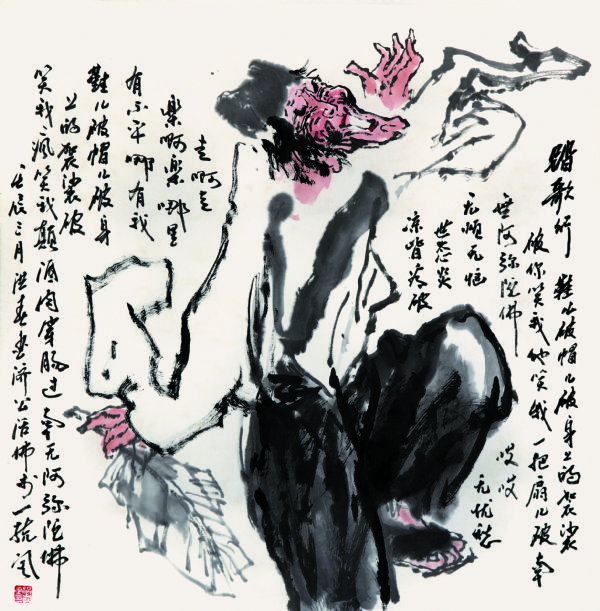 踏歌行 鞋儿破帽儿破身上的袈裟
破你笑我他笑我一把扇儿破南
無阿弥陀佛 哎哎
无烦无恼 无忧愁
世态炎
凉皆看破
走啊走
樂啊樂哪里
有不平哪有我
鞋儿破帽儿破身
上的袈裟破
笑我疯笑我颠酒肉穿肠过南无阿弥陀佛
壬辰三月洪春画济公活佛于一